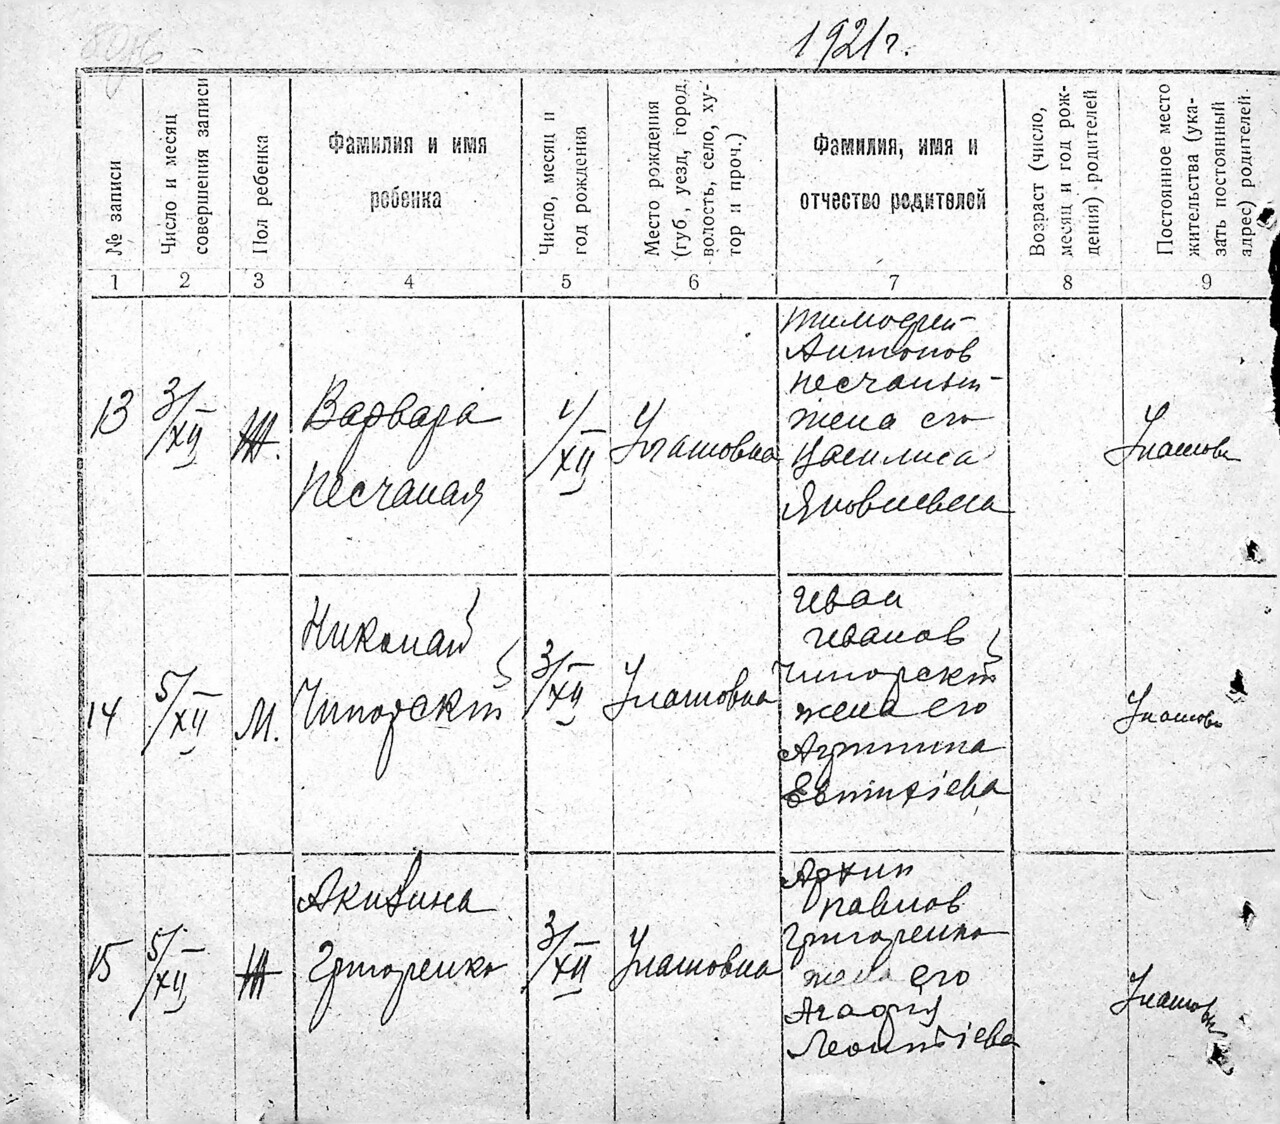 1921 г.
№ записи
Число и месяц
совершения записи
Пол ребенка
Фамилия и имя
ребенка
Число, месяц и
год рождения
Место рождения
(губ., уезд, город,
волость, село, ху-
тор и проч.)
Фамилия, имя и
отчество родителей
Возраст (число,
месяц и год рож-
дения) родителей
Постоянное место
жительства (ука-
зать постоянный
адрес) родителей
1
2
3
4
5
6
7
8
9
13
3/XII
Ж.
Варвара
Песчаная
1/XII
Тимофей
Антонов
Песчаный
жена его
Василиса
Яковлевна
14
5/XII
М.
Николай
Чигорский
3/XII
Улашовка
Иван
Иванов
Чигорский
жена его
15
5/XII
Ж
Акилина
Григоренко
3/XII
Улашовка
Архип
Павлов
Григоренко
жена его
Агафия
Леонтіева